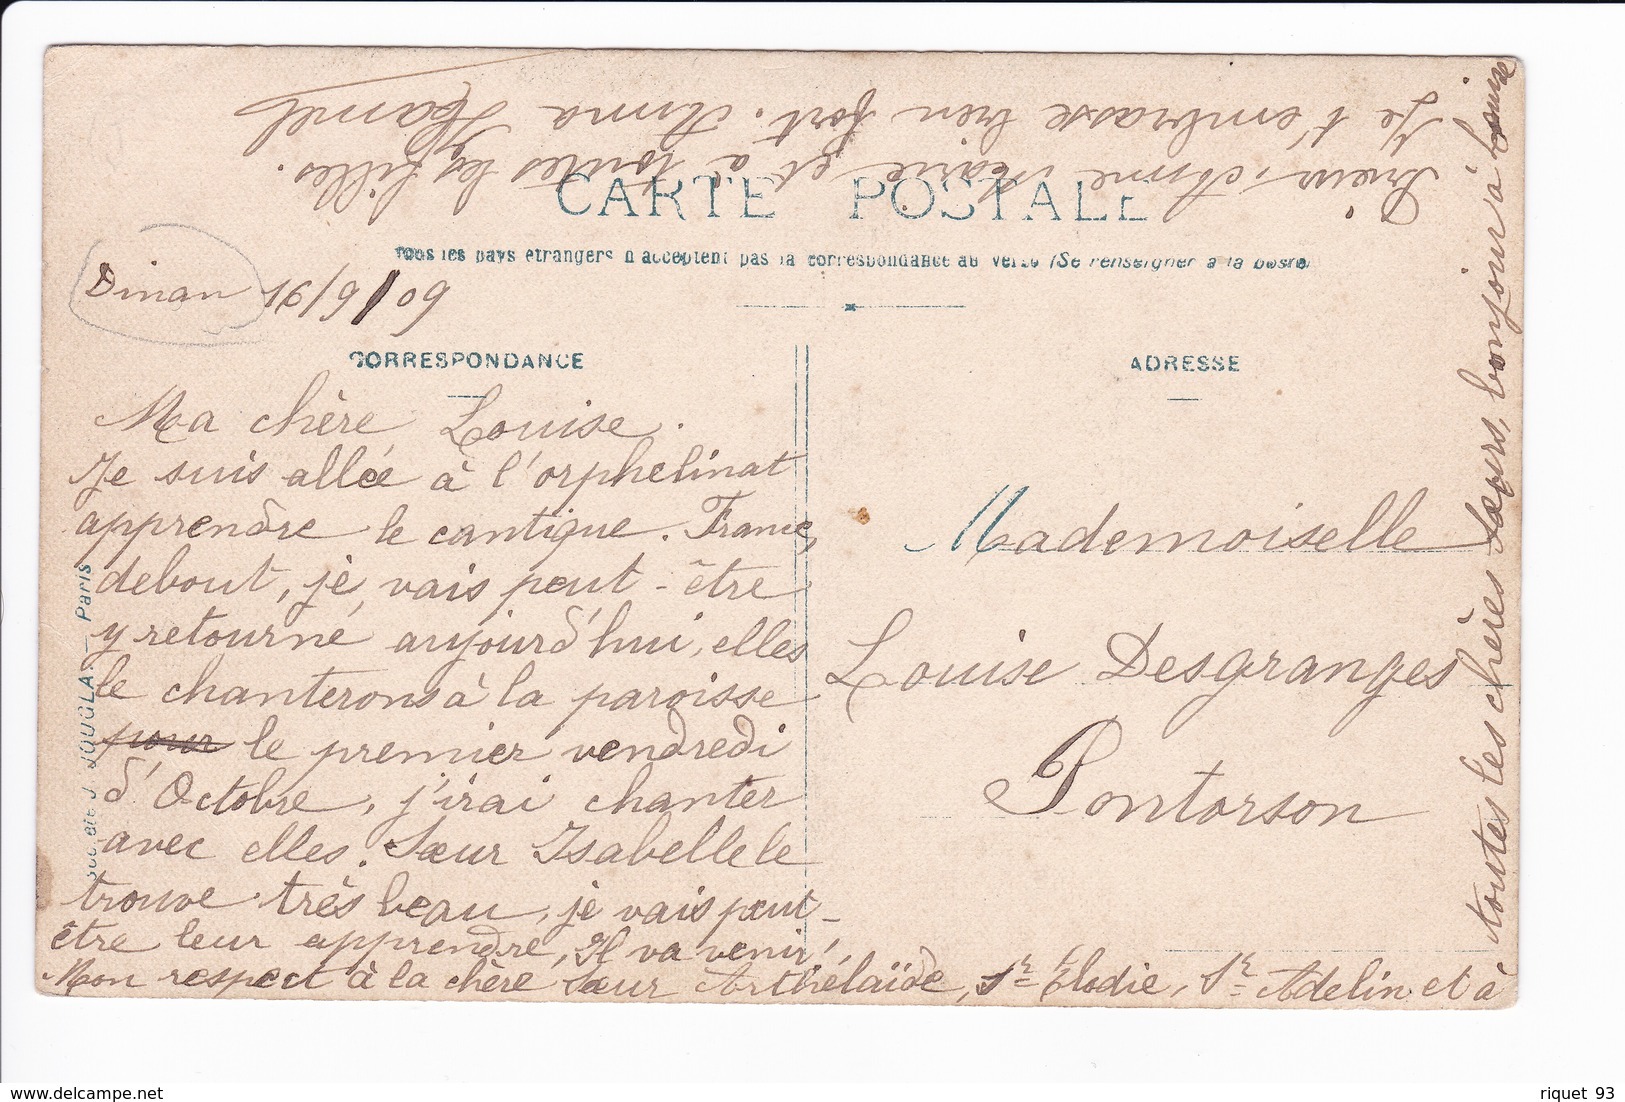 CARTE POSTALE
Tous les pays étrangers n'acceptent pas la correspondance au verso (Se renseigner à la Poste)
Dinan 16/9/09
CORRESPONDANCE
Ma chère Louise.
Je suis allée à l'orphelinat
apprendre le cantique. France,
debout, je vais peut-être
y retourné aujourd'hui, elles
le chanterons à la paroisse
pour le premier vendredi
d'Octobre, j'irai chanter
avec elles. Sœur Isabelle le
trouve très beau, je vais peut-
être leur apprendre, Il va venir,
Mon respect à la chère Sœur Arthélaïde, Sr Elodie, Sr Adelin et à
toutes les chères Sœurs, bonjour à Louise
Anne Marie et à toutes les filles.
Je t'embrasse bien fort. Anna Hamel
ADRESSE
Mademoiselle
Louise Desgranges
Pontorson
J. JOUGLA — Paris
riquet 93